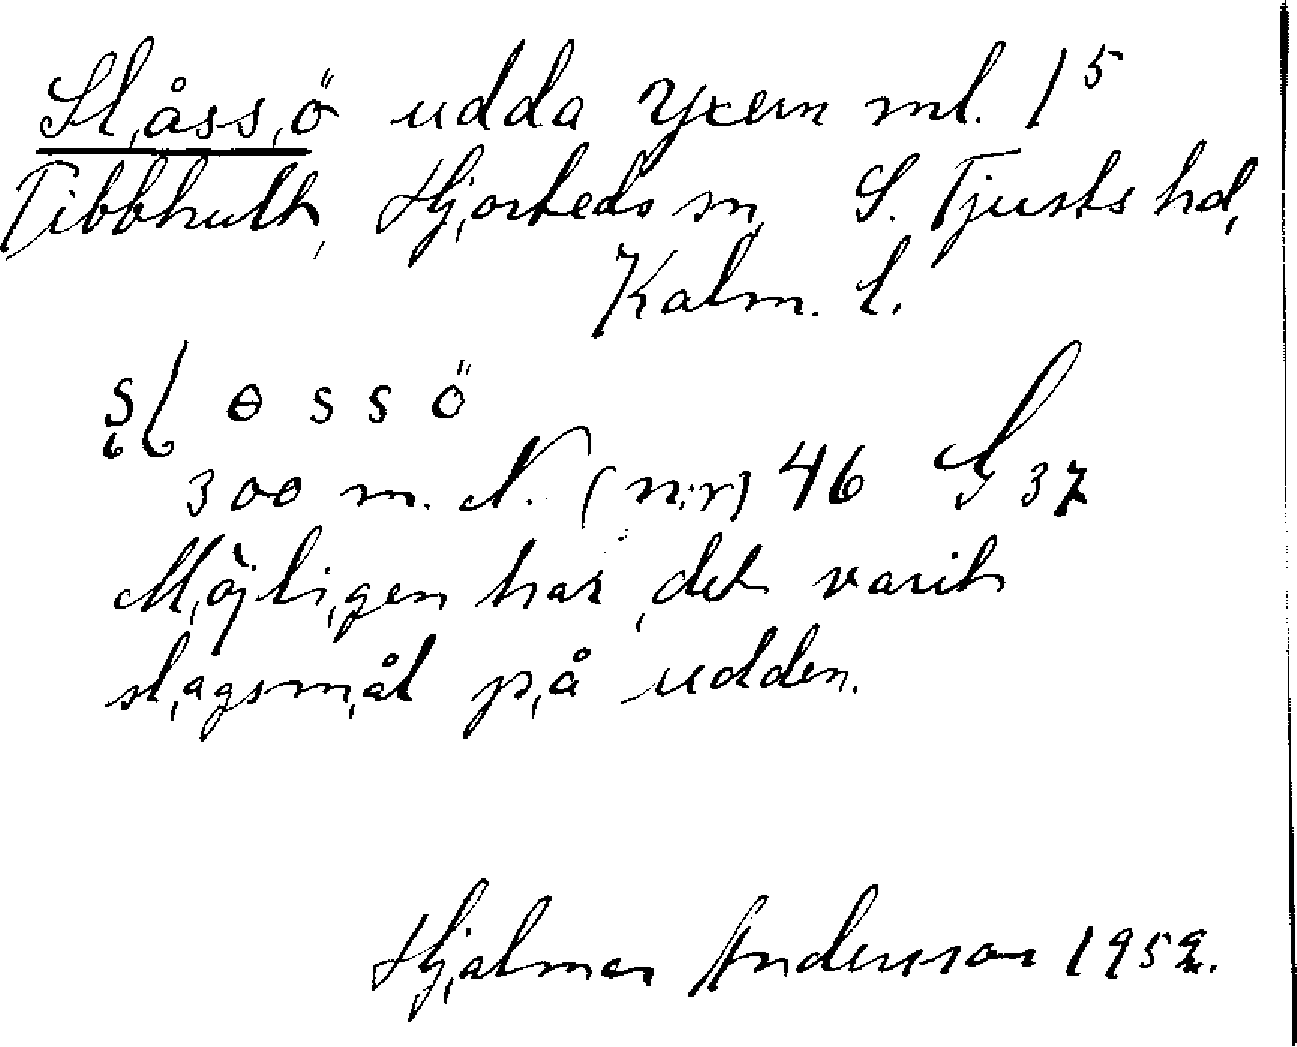 Slåssö udda Yxern ml. 1⁵
Tibbhult, Hjorteds sn S. Tjusts hd,
Kalm. l.
ʂɭ ɵ s s ö
300 m. N. (n:r) 46 G 37
Möjligen har det varit
slagsmål på udden.
Hjalmar Andersson 1952.